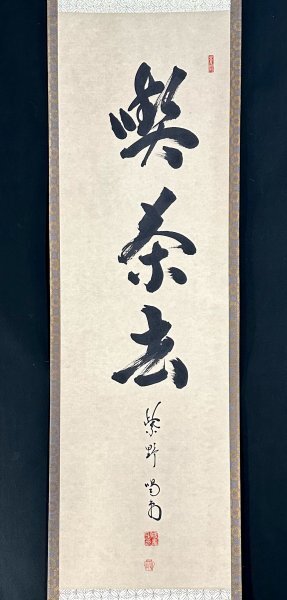 喫茶去
紫野